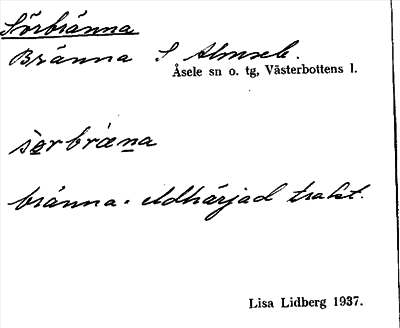 Sörbränna
Bränna S Almsele.
Åsele sn o. tg, Västerbottens l.
sørbræna
bränna = eldhärjad trakt.
Lisa Lidberg 1937.